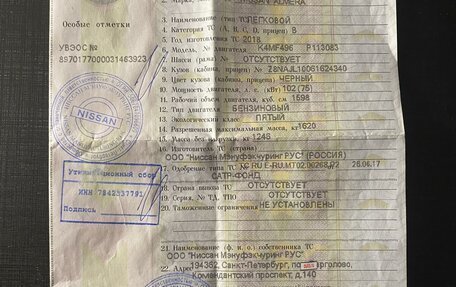 Особые отметки
УВЭОС №
8970177000031483923
NISSAN
Утилизационный сбор
ИНН 7842337791
Подпись
2. Марка, ALMERA
3. Наименование (тип ТС) ЛЕГКОВОЙ
4. Категория ТС (A, B, C, D, прицеп) B
5. Год изготовления ТС 2018
6. Модель, № двигателя K4MF496 P113083
7. Шасси (рама) № ОТСУТСТВУЕТ
8. Кузов (кабина, прицеп) № Z8NAJL10061624340
9. Цвет кузова (кабины, прицепа) ЧЕРНЫЙ
10. Мощность двигателя, л. с. (кВт) 102(75)
11. Рабочий объем двигателя, куб. см 1598
12. Тип двигателя БЕНЗИНОВЫЙ
13. Экологический класс ПЯТЫЙ
14. Разрешенная максимальная масса, кг 1620
15. Масса без нагрузки, кг 1248
16. Изготовитель ТС (страна)
ООО "Ниссан Мэнуфэкчуринг РУС" (РОССИЯ)
17. Одобрение типа ТС № 28.06.17
САТР-ФОНД
18. Страна вывоза ТС ОТСУТСТВУЕТ
19. Серия, № ТД, ТПО ОТСУТСТВУЕТ
20. Таможенные ограничения НЕ УСТАНОВЛЕНЫ
21. Наименование (ф. и. о.) собственника ТС
ООО "Ниссан Мэнуфэкчуринг РУС"
22. Адрес 194362, Санкт-Петербург, Парголово,
Комендантский проспект, д.140